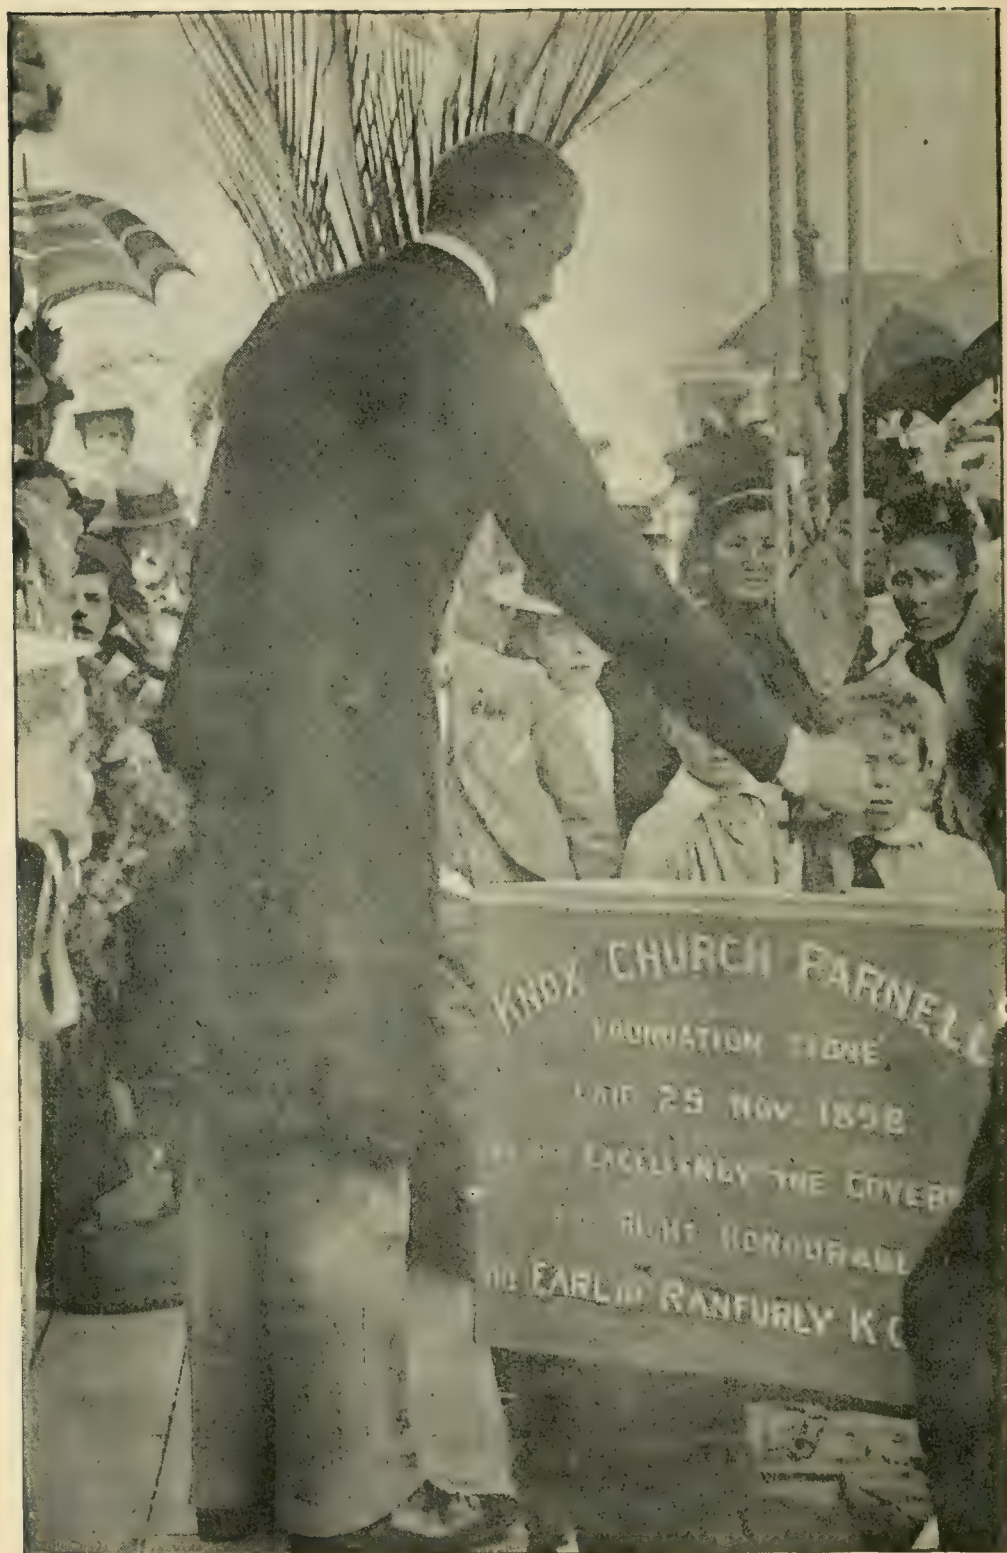 KNOX CHURCH PARNELL
FOUNDATION STONE
LAID 29 NOV. 1898
EXCELLENCY THE GOVER
RIGHT HONOURABL
THE EARL OF RANFURLY K C